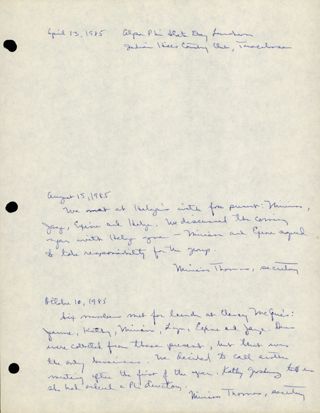 April 13, 1985 Alpha Phi State Day Luncheon
Indian Hills Country Club, Tuscaloosa
August 15, 1985
We met at Helga's with four present:
and Helga. We discussed the coming
year with Helga gone — Miriam and agreed
to take responsibility for the group.
Miriam Thomas, secretary
October 10, 1985
Six members met for lunch at Clancy McGee's:
Kathy, Miriam, and Dues
were collected from those present, but that was
the only business. We decided to call another
meeting after the first of the year. Kathy
she had ordered a Phi directory.
Miriam Thomas, secretary